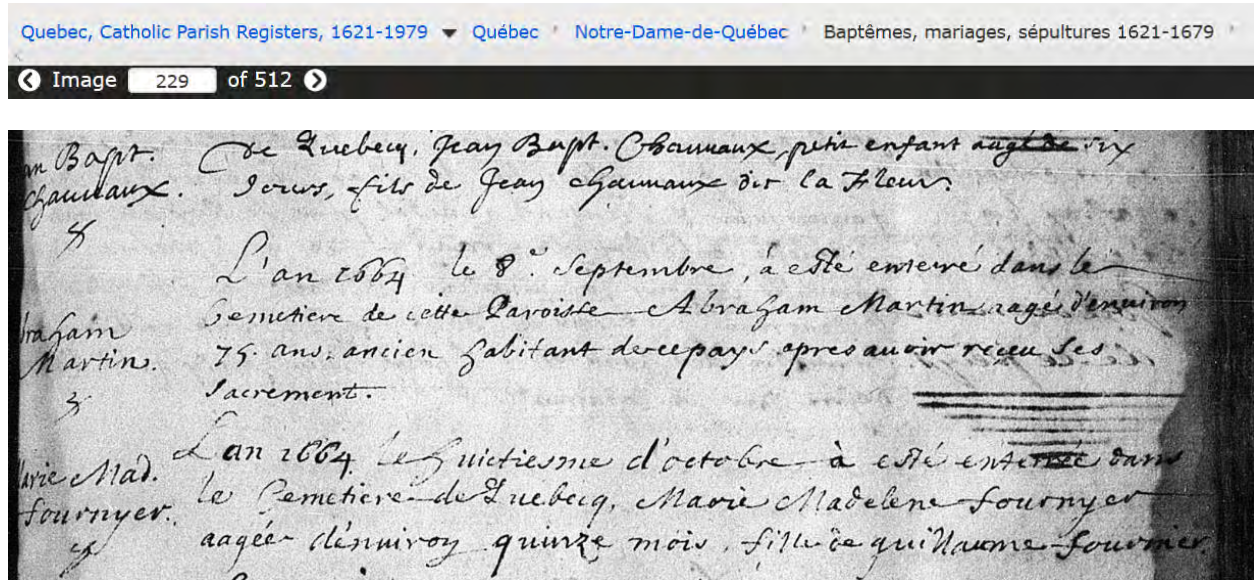 Quebec, Catholic Parish Registers, 1621-1979 Québec Notre-Dame-de-Québec Baptêmes, mariages, sépultures 1621-1679
Image 229 of 512
n Bapt. de Quebecq, Jean Bapt. Chauuaux, petit enfant aagé de six
Chauuaux. Jours, fils de Jean Chauuaux dit la Fleur.
L'an 1664 le 8e. Septembre, à esté enterré dans le
braham Cemetiere de cette Paroisse Abraham Martin aagé d'enuiron
Martin. 75. ans, ancien habitant de ce pays apres auoir receu ses
Sacrement.
L'an 1664 le huictiesme d'octobre à esté enterrée dans
arie Mad. le Cemetiere de Quebecq, Marie Madelene fournyer
fournyer. aagée d'enuiron quinze mois, fille de guillaume fournier